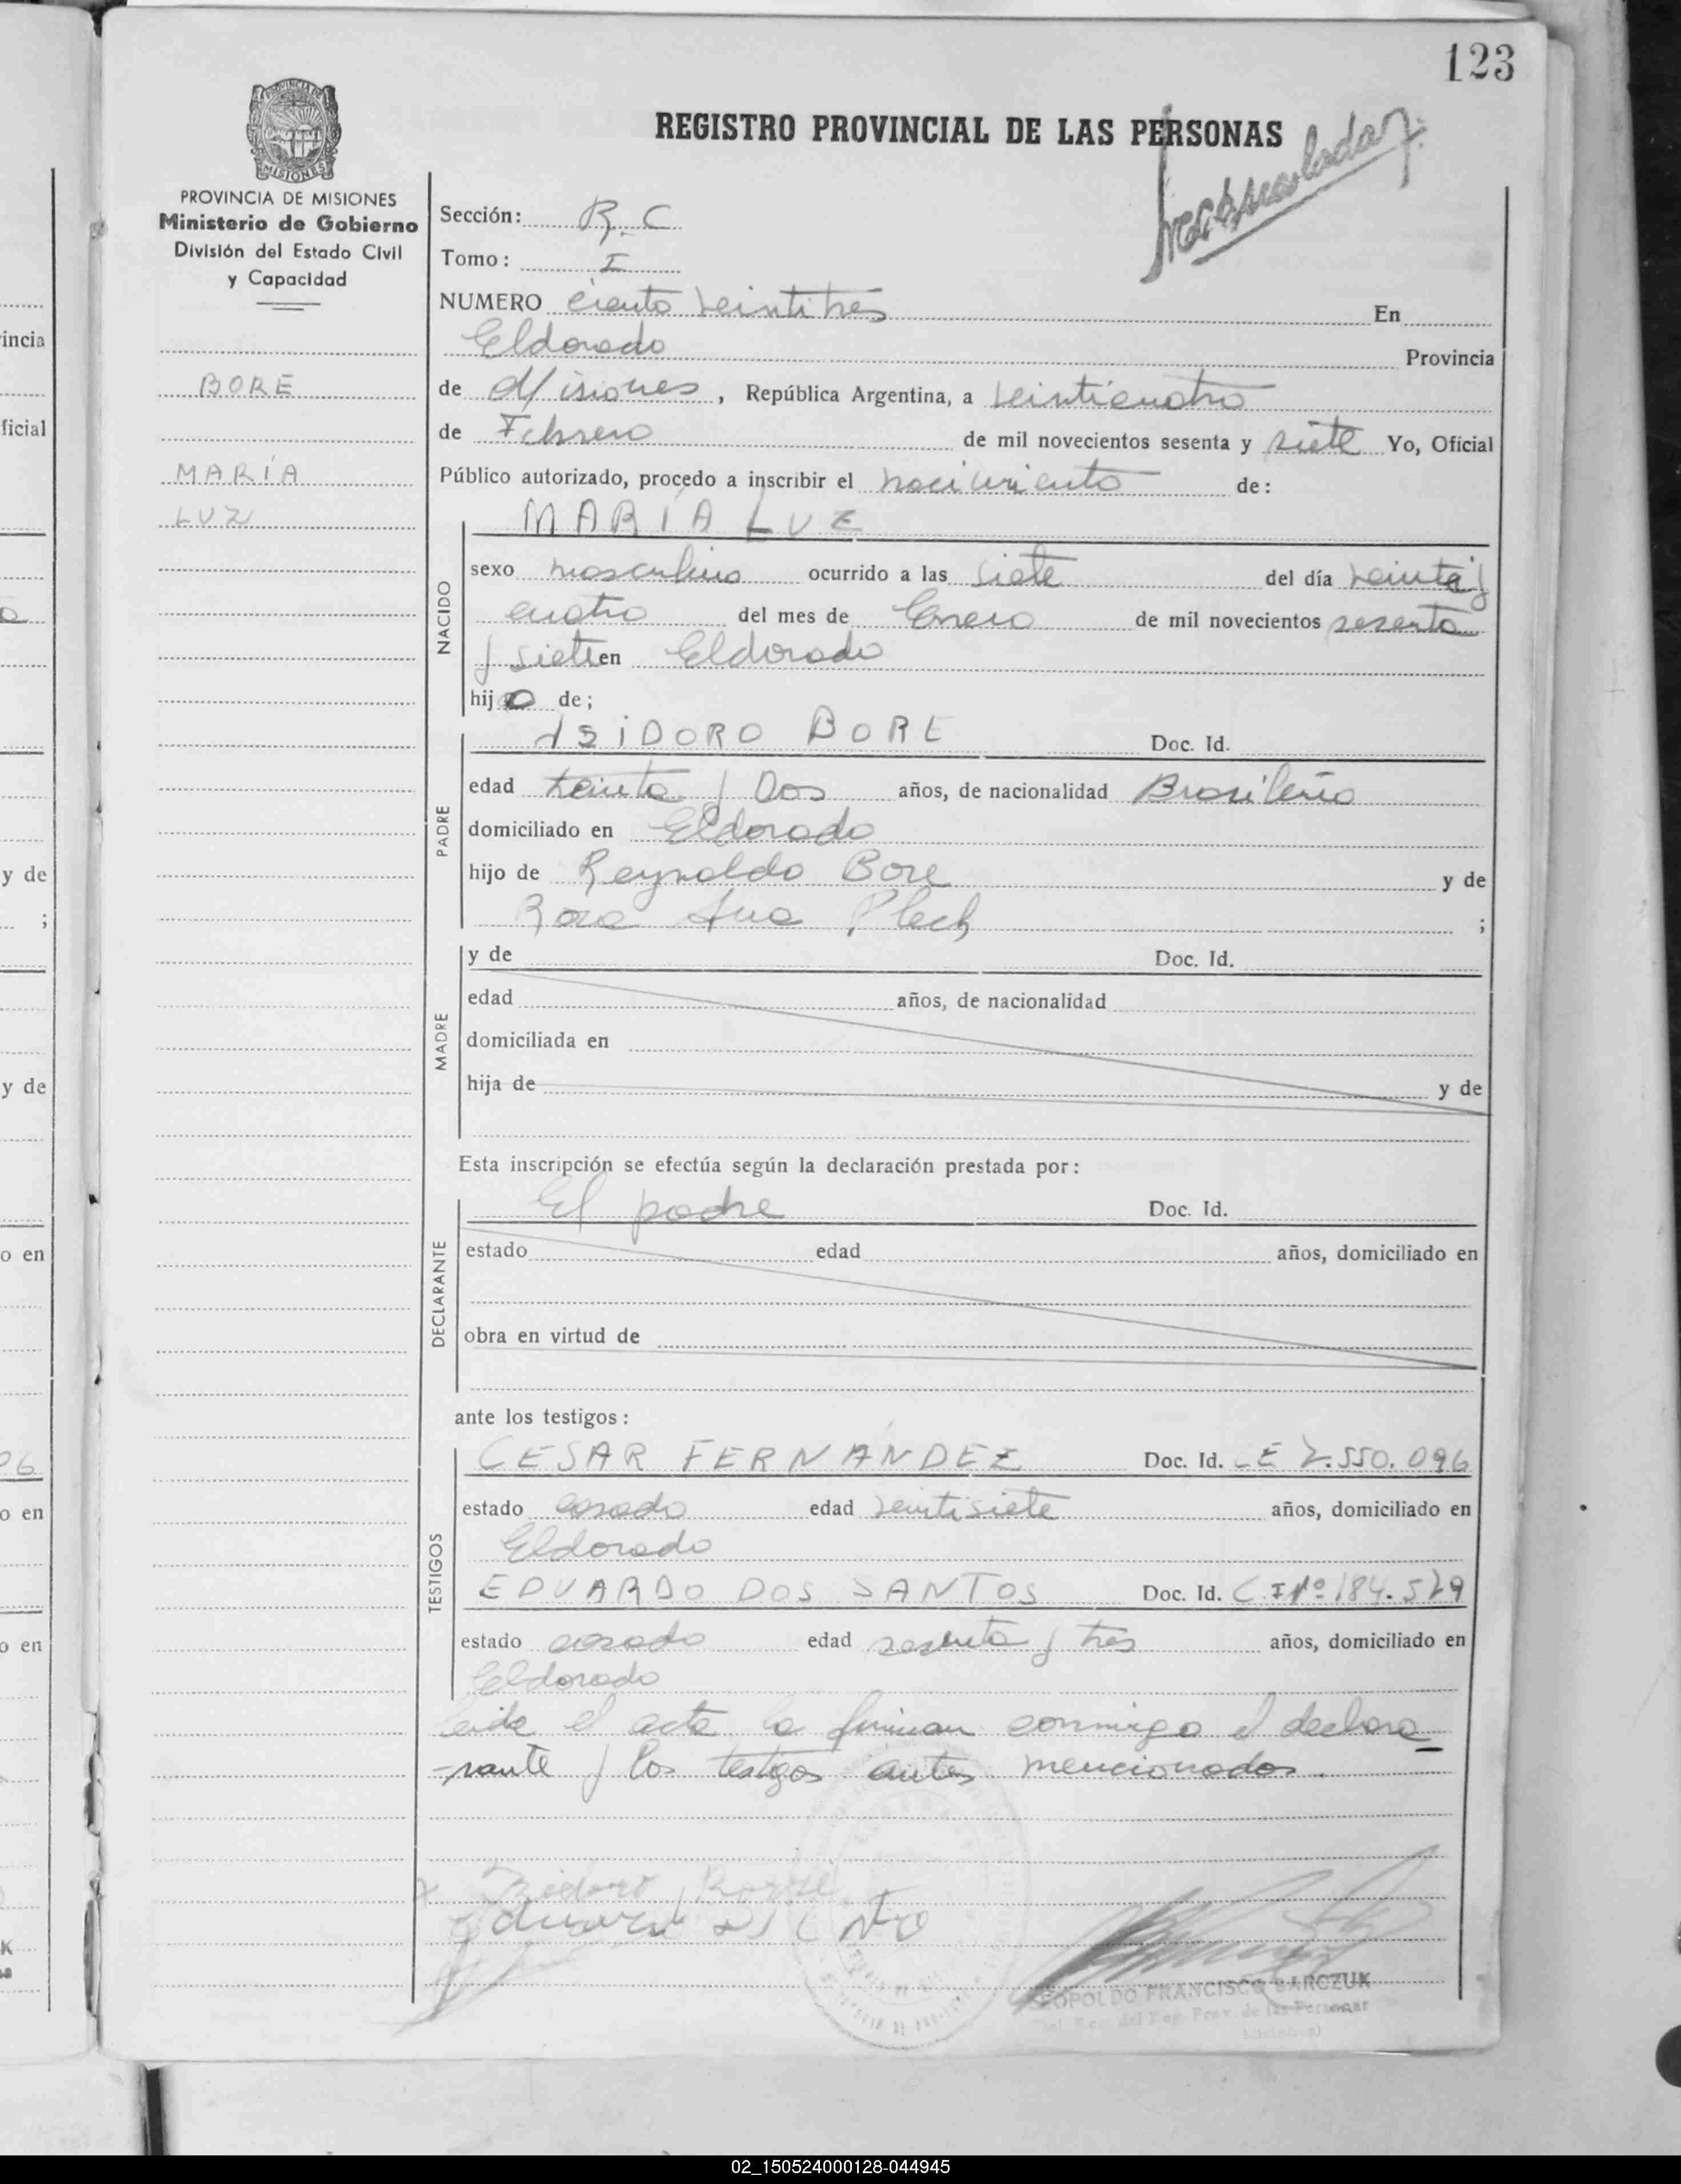 123
REGISTRO PROVINCIAL DE LAS PERSONAS
PROVINCIA DE MISIONES
Ministerio de Gobierno
División del Estado Civil
y Capacidad
BORE
MARÍA
LUZ
Sección: R.C
Tomo: I
NUMERO ciento veintitres En
Eldorado Provincia
de Misiones, República Argentina, a veinticuatro
de Febrero de mil novecientos sesenta y siete Yo, Oficial
Público autorizado, procedo a inscribir el nacimiento de:
MARÍA LUZ
NACIDO
sexo masculino ocurrido a las siete del día veinte y
cuatro del mes de Enero de mil novecientos sesenta
y siete en Eldorado
hijo de;
PADRE
ISIDORO BORE Doc. Id.
edad treinta y Dos años, de nacionalidad Brasileño
domiciliado en Eldorado
hijo de Reynoldo Bore y de
Rosa Ana Plech ;
MADRE
y de Doc. Id.
edad años, de nacionalidad
domiciliada en
hija de y de
Esta inscripción se efectúa según la declaración prestada por:
DECLARANTE
El padre Doc. Id.
estado edad años, domiciliado en
obra en virtud de
ante los testigos:
TESTIGOS
CESAR FERNÁNDEZ Doc. Id. LE 7.550.096
estado casado edad veintisiete años, domiciliado en
Eldorado
EDUARDO DOS SANTOS Doc. Id. C.I Nº 184.529
estado casado edad sesenta y tres años, domiciliado en
Eldorado
leida el acta la firman conmigo el declara
rante y los testigos antes mencionados.
LEOPOLDO FRANCISCO BARCZUK
del Reg. Prov. de las Personas
02_150524000128-044945